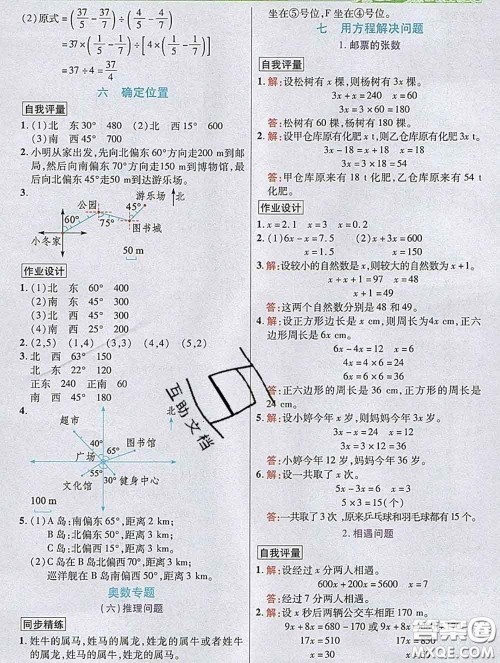 (2)原式=(37/5-37/7)÷(4/5-4/7)
=[37×(1/5-1/7)]÷[4×(1/5-1/7)]
=37÷4=37/4
六 确定位置
自我评量
1. (1)北 东 30° 480 (2)北 西 15° 600
(3)南 西 45° 700
2. 小明从家出发,先向北偏东60°方向走200 m到邮
局,然后向南偏东70°方向走150 m到博物馆,最
后向北偏东45°走50 m到达游乐场。
3.
公园
45°
游乐场
北
60°
75°
图书城
小冬家
50 m
作业设计
1. (1)北 东 60° 400
(2)南 东 45° 300
(3)南 西 30° 600
2. (2,5) (1,4) (3,1) (4,4) (5,2)
3. 北 西 63° 150
北 东 22° 120
正东 240 正南 60
南 西 45° 180
4.
北
超市
图书馆
40°
65°
广场
55°
60°
文化馆
健身中心
100 m
5. (1)A岛:南偏东65°,距离2 km;
B岛:北偏西50°,距离3 km;
C岛:南偏西15°,距离3 km。
(2)C岛在B岛南偏西60°方向;
巡洋舰在B岛南偏东45°,距离2 km。
奥数专题
(六)推理问题
同步精练
1. 姓牛的属马,姓马的属龙,姓龙的属牛或者姓牛的
坐在⑤号位,F坐在④号位。
七 用方程解决问题
1. 邮票的张数
自我评量
1. 解:设松树有x棵,则杨树有3x棵。
3x+x=240 x=60
3x=3×60=180
答:松树有60棵,杨树有180棵。
2. 解:设甲仓库原有化肥x t,则乙仓库原有化肥3x t。
3x-18=x+18 x=18
3x=3×18=54
答:甲仓库原来有18 t化肥,乙仓库原来有54 t
化肥。
作业设计
1. x=2.1 x=3 x=0.9
2. (1)6x-x=7.5 (2)x+3x=600
x=1.5 x=150
3. 解:设较小的自然数是x,则较大的自然数是x+1。
x+x+1=97 x=48
x+1=49
答:这两个自然数分别是48和49。
4. 解:设正方形边长是x cm,则周长为4x cm,正
六边形的周长是6x cm。
6x-4x=12 x=6
4x=4×6=24
6x=6×6=36
答:正六边形的周长是36 cm,正方形的周长是
24 cm。
5. 解:设小婷今年x岁,则妈妈今年3x岁。
3x-x=24 x=12
3x=3×12=36
答:小婷今年12岁,妈妈今年36岁。
6. 解:设一共取了x次。
5x-3x=6 x=3
5x=5×3=15
答:一共取了3次,原来乒乓球和羽毛球都有15个。
2. 相遇问题
自我评量
1. 解:设经过x分两人相遇。
600x+200x=5600 x=7
答:经过7分两人相遇。
2. 解:设x秒后两辆公交车相距170 m。
9x+8x=680-170 9x+8x=680+170
17x=510 17x=850
互助文档